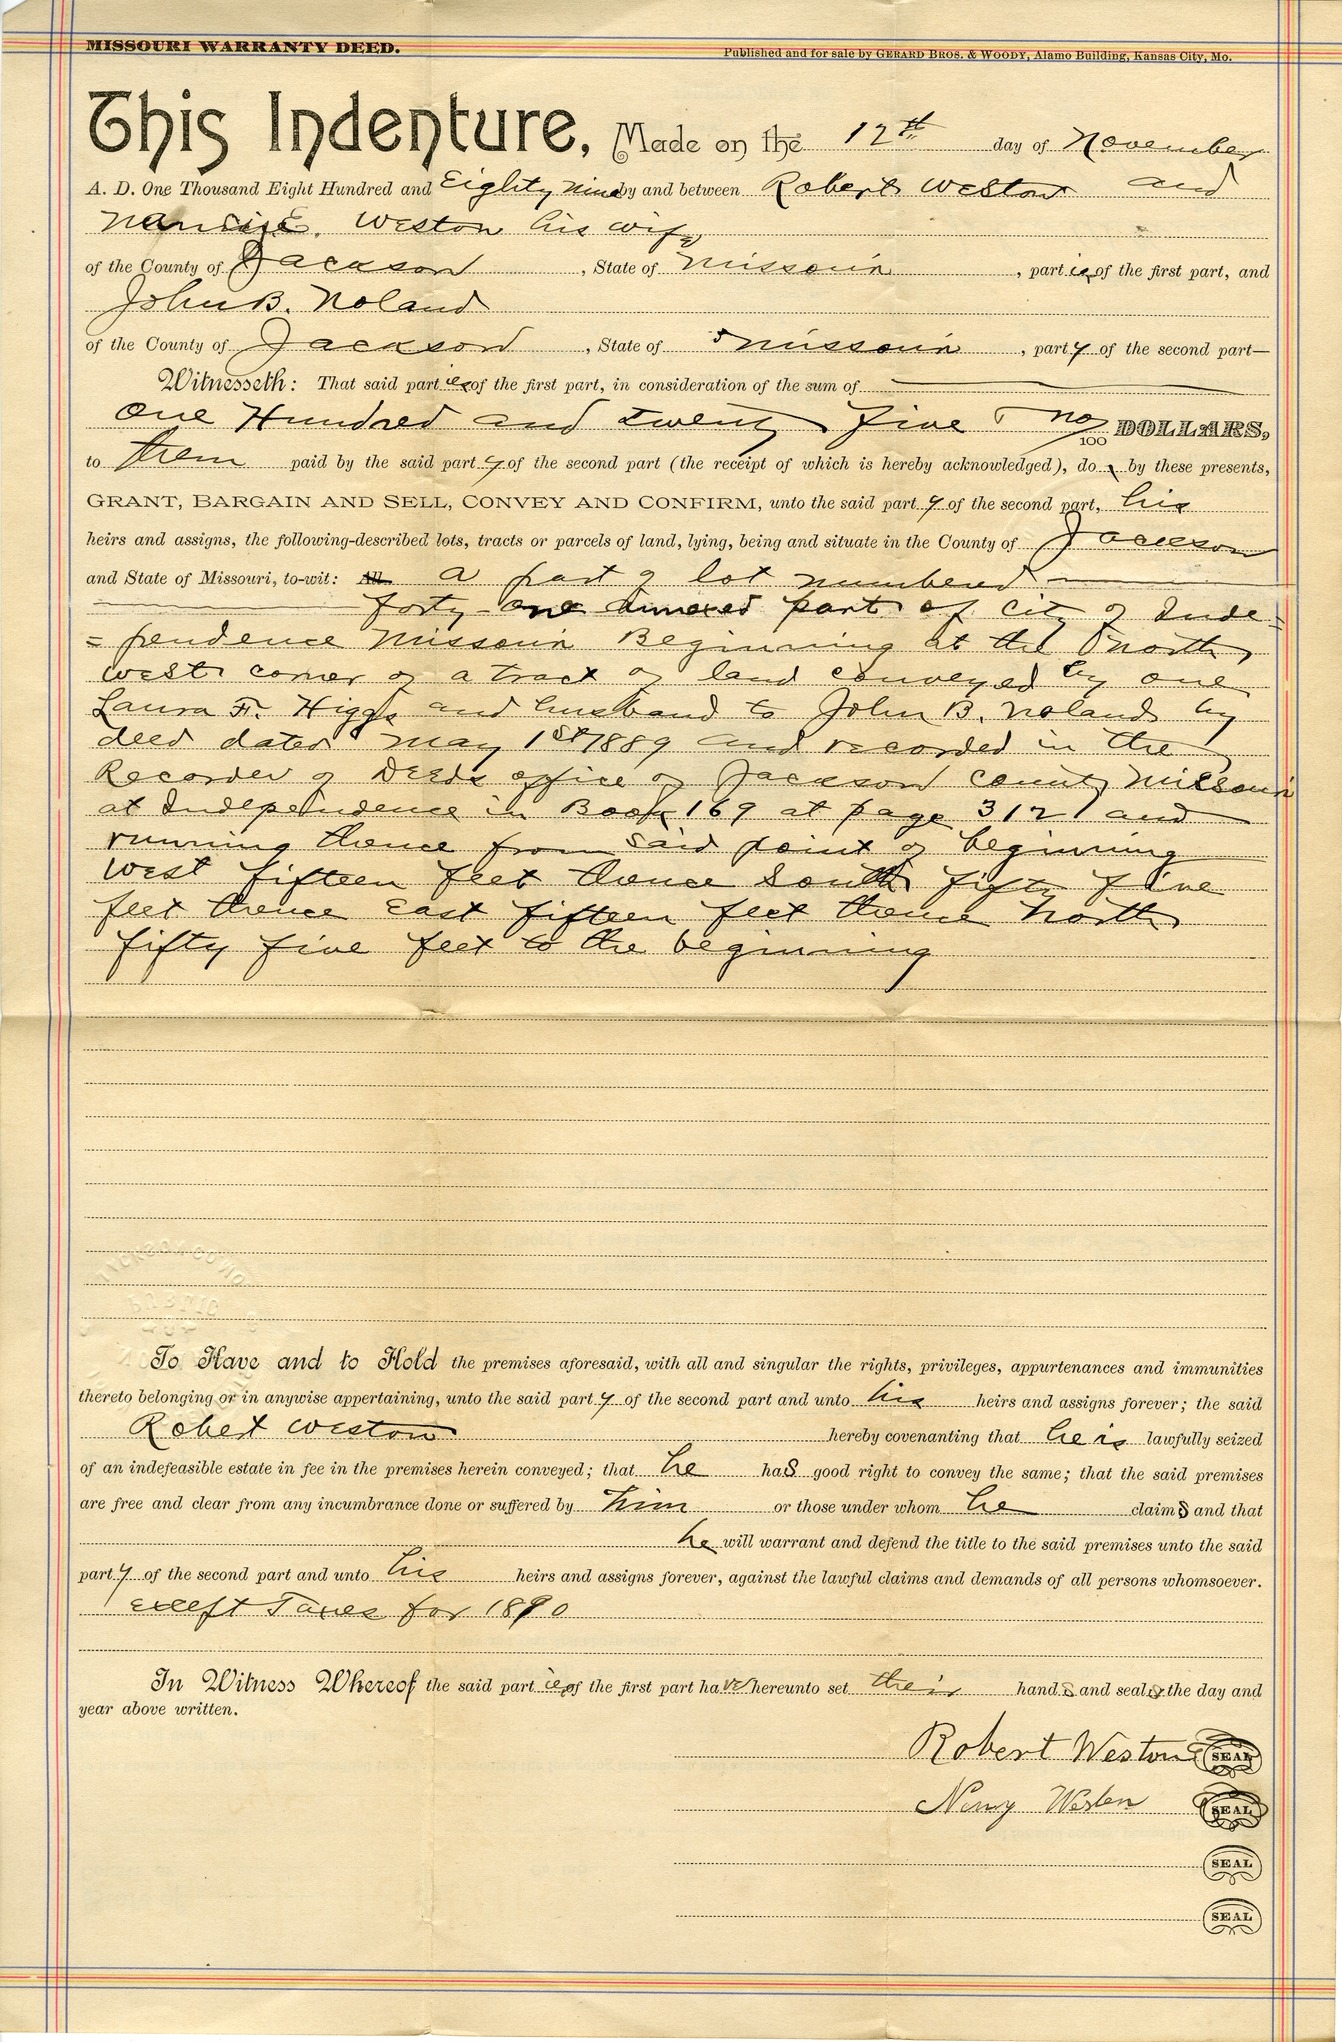 MISSOURI WARRANTY DEED.
Published and for sale by GERARD BROS. & WOODY, Alamo Building, Kansas City, Mo.
This Indenture, Made on the 12th day of November
A. D. One Thousand Eight Hundred and Eighty nine by and between Robert Weston and
Weston his wife
of the County of Jackson, State of Missouri, part ies of the first part, and
John B. Noland
of the County of Jackson, State of Missouri, part y of the second part—
Witnesseth: That said part ies of the first part, in consideration of the sum of
One Hundred and twenty five no/100 DOLLARS,
to them paid by the said part y of the second part (the receipt of which is hereby acknowledged), do by these presents,
GRANT, BARGAIN AND SELL, CONVEY AND CONFIRM, unto the said part y of the second part, his
heirs and assigns, the following-described lots, tracts or parcels of land, lying, being and situate in the County of Jackson
and State of Missouri, to-wit: All a part of lot numbered
forty-one annexed part of city of Inde=
=pendence Missouri Beginning at the North
west corner of a tract of land conveyed by one
Laura F. Higgs and husband to John B. Noland by
deed dated May 1st 1889 and recorded in the
Recorder of Deeds office of Jackson County Missouri
at Independence in Book 169 at page 312 and
running thence from said point of beginning
West fifteen feet thence South fifty five
feet thence East fifteen feet thence North
fifty five feet to the beginning
To Have and to Hold the premises aforesaid, with all and singular the rights, privileges, appurtenances and immunities
thereto belonging or in anywise appertaining, unto the said part y of the second part and unto his heirs and assigns forever; the said
Robert Weston hereby covenanting that he is lawfully seized
of an indefeasible estate in fee in the premises herein conveyed; that he has good right to convey the same; that the said premises
are free and clear from any incumbrance done or suffered by him or those under whom he claims and that
he will warrant and defend the title to the said premises unto the said
part y of the second part and unto his heirs and assigns forever, against the lawful claims and demands of all persons whomsoever.
except Taxes for 1890
In Witness Whereof the said part ies of the first part have hereunto set their hands and seals the day and
year above written.
Robert Weston SEAL
Nancy Weston SEAL
SEAL
SEAL